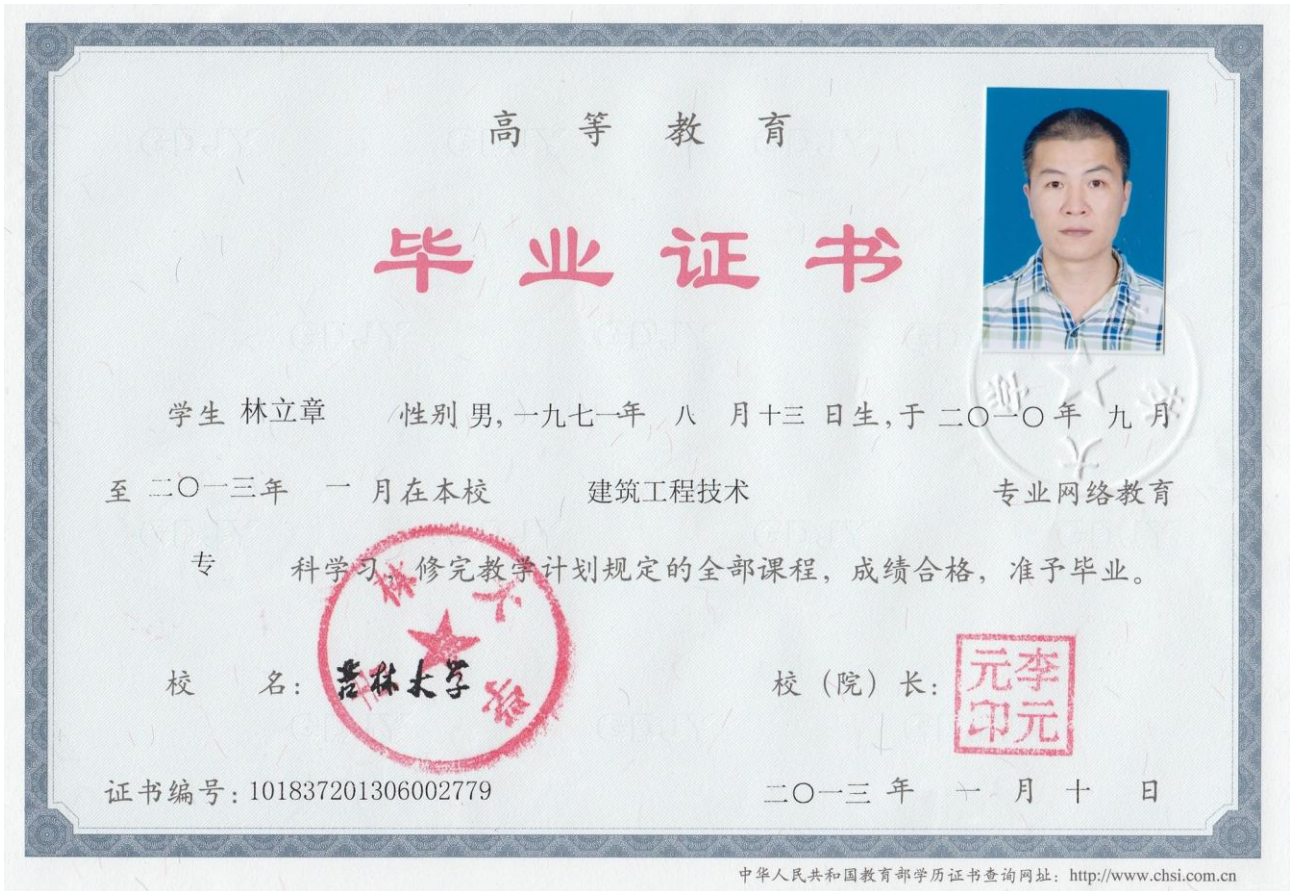 高等教育
毕业证书
学生 林立章 性别 男, 一九七一年 八 月十三 日生, 于 二〇一〇年 九 月
至 二〇一三年 一 月在本校 建筑工程技术 专业网络教育
专 科学习, 修完教学计划规定的全部课程, 成绩合格, 准予毕业。
校 名: 吉林大学
吉林大学
校（院）长: 李元元印
证书编号: 101837201306002779
二〇一三 年 一 月 十 日
中华人民共和国教育部学历证书查询网址: http://www.chsi.com.cn